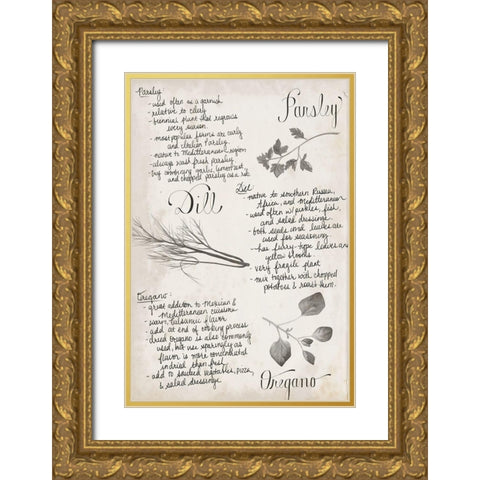 Parsley
Parsley:
- used often as a garnish
- relative to celery
- biennial plant that regrows
every season.
- most popular forms are curly
and Italian Parsley.
- native to Mediterranean region
- always wash fresh parsley
- try combining garlic, lemon zest,
and chopped parsley as a rub.
Dill
Dill
- native to southern Russia,
Africa, and Mediterranean
- used often w/ pickles, fish,
and salad dressings.
- both seeds and leaves are
used for seasoning
- has furry-hope leaves and
yellow blooms.
- very fragile plant
- mix together with chopped
potatoes & roast them.
Oregano:
- great addition to Mexican &
Mediterranean cuisine
- warm, balsamic flavor
- add at end of cooking process
- dried oregano is also commonly
used, but use sparingly as
flavor is more concentrated
in dried than fresh.
- add to sautéed vegetables, pizza,
& salad dressings.
Oregano